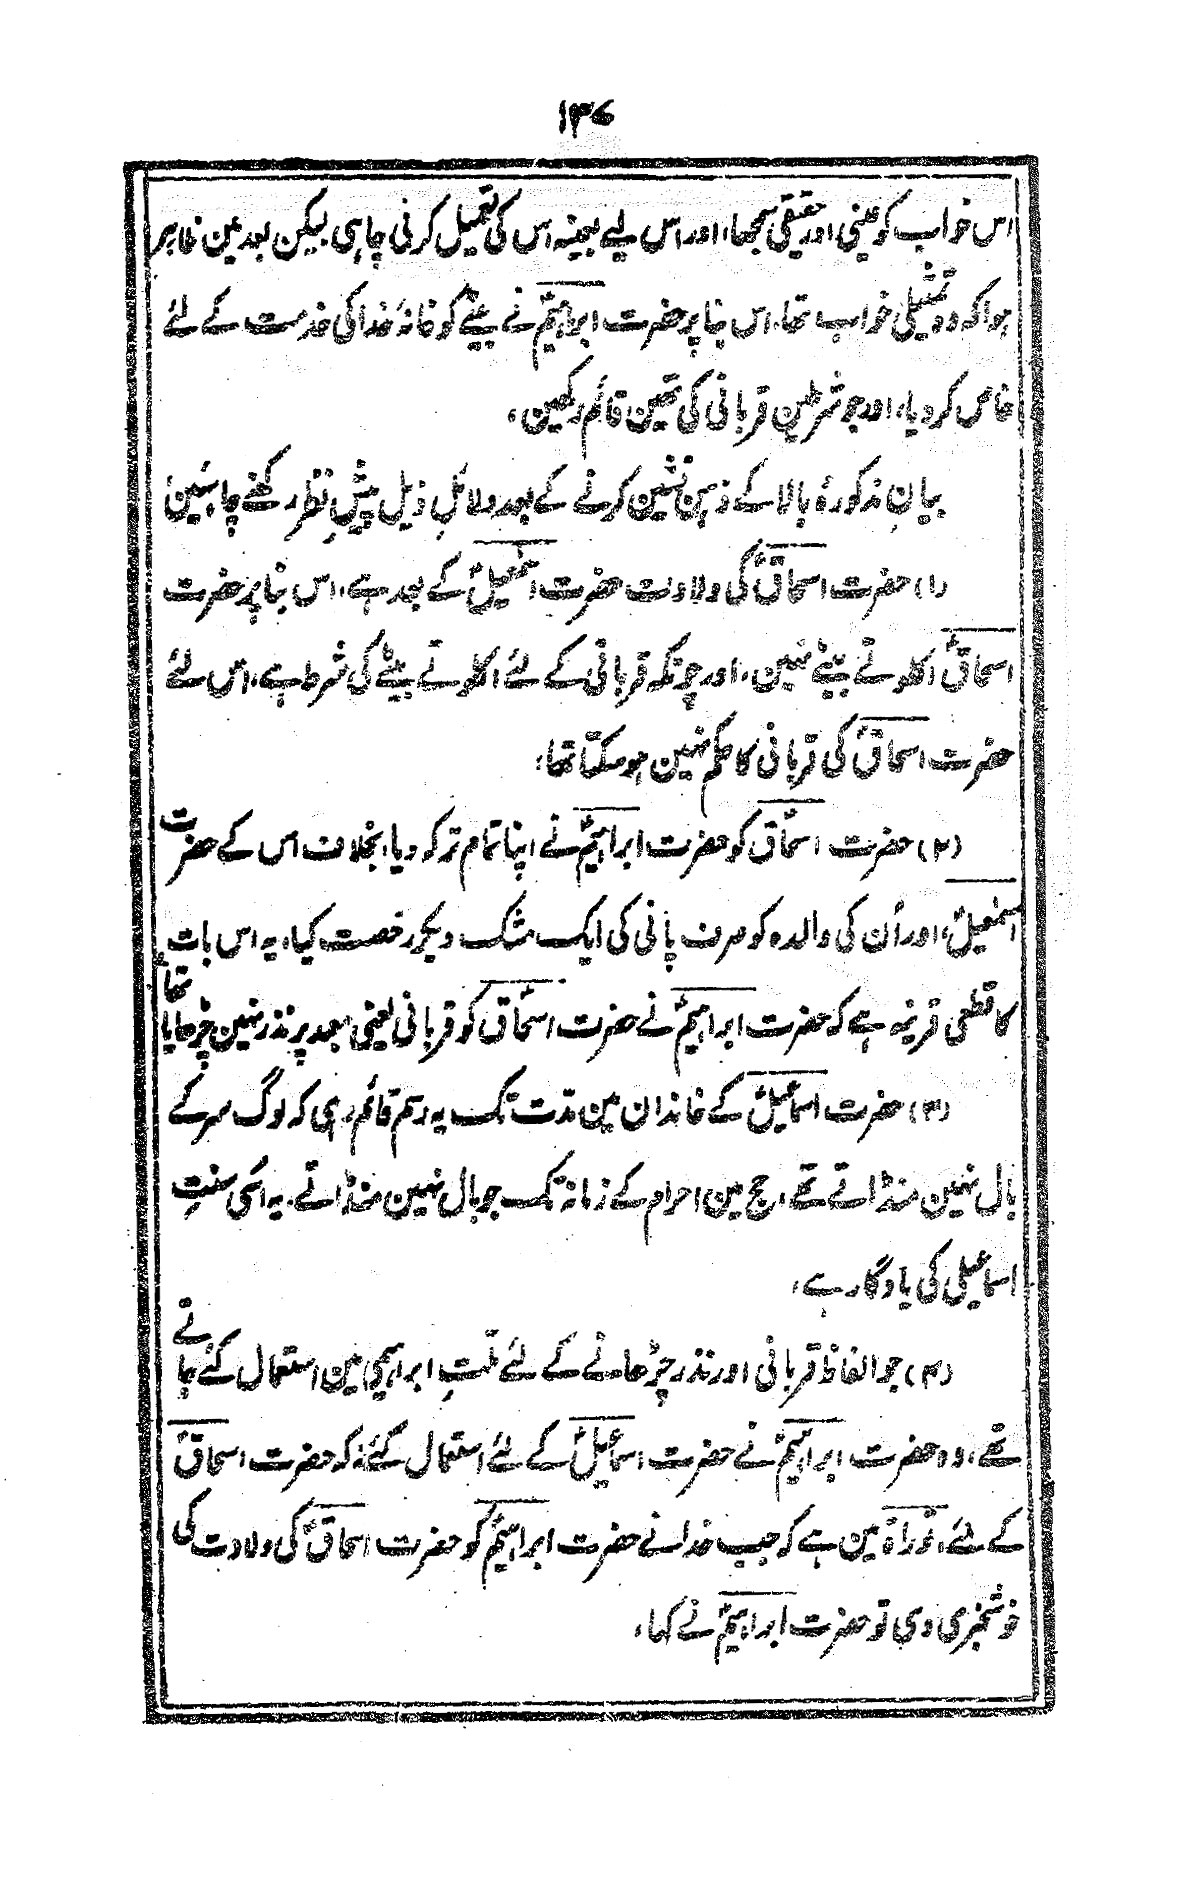 ۱۳۷
اس خواب کو عینی اور حقیقی سمجھا، اور اس لیے بعینہ اس کی تعمیل کرنی چاہی لیکن بعد مین ظاہر
ہوا کہ وہ تمثیلی خواب تھا، اس بنا پر حضرت ابراہیمؑ نے بیٹے کو خانۂ خدا کی خدمت کے لئے
خاص کر دیا، اور جو شرطین قربانی کی تھین قائم رکھین،
بیانِ مذکورۂ بالا کے ذہن نشین کرنے کے بعد دلائلِ ذیل پیشِ نظر رکھنے چاہئین
(۱) حضرت اسحاقؑ کی ولادت حضرت اسمٰعیلؑ کے بعد ہے، اس بنا پر حضرت
اسحاقؑ اکلوتے بیٹے نہین، اور چونکہ قربانی کے لئے اکلوتے بیٹے کی شرط ہے، اس لئے
حضرت اسحاقؑ کی قربانی کا حکم نہین ہو سکتا تھا،
(۲) حضرت اسحٰق کو حضرت ابراہیمؑ نے اپنا تمام ترکہ دیا، بخلاف اس کے حضرت
اسمٰعیلؑ، اور اُن کی والدہ کو صرف پانی کی ایک مشک دیکر رخصت کیا، یہ اس بات
کا قطعی قرینہ ہے کہ حضرت ابراہیمؑ نے حضرت اسحٰق کو قربانی یعنی معبد پر نذر نہین چڑھایا تھا
(۳) حضرت اسماعیلؑ کے خاندان مین مدت تک یہ رسم قائم رہی کہ لوگ سر کے
بال نہین منڈاتے تھے، حج مین احرام کے زمانہ تک جو بال نہین منڈاتے، یہ اُسی سنتِ
اسماعیلی کی یادگار ہے،
(۴) جو الفاظ قربانی اور نذر چڑھانے کے لئے ملتِ ابراہیمی مین استعمال کئے جاتے
تھے، وہ حضرت ابراہیمؑ نے حضرت اسماعیلؑ کے لئے استعمال کئے نہ کہ حضرت اسحاقؑ
کے لئے، توراۃ مین ہے کہ جب خدا نے حضرت ابراہیمؑ کو حضرت اسحاقؑ کی ولادت کی
خوشخبری دی تو حضرت ابراہیمؑ نے کہا،